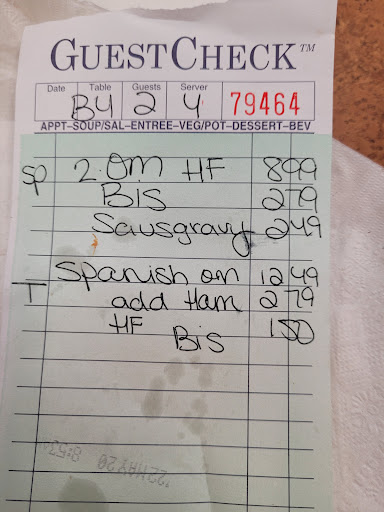 GUESTCHECK™
Date Table Guests Server
B4 2 4 79464
APPT-SOUP/SAL-ENTREE-VEG/POT-DESSERT-BEV
SP 2.Om HF 899
BIS 279
Sausgravy 249
T Spanish om 1249
add Ham 279
HF Bis 150
'22MAY20 8:53